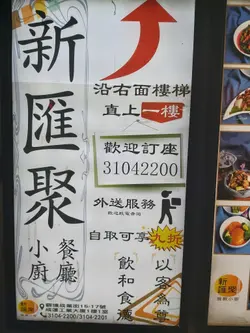 新匯聚
小廚
餐廳
沿右面樓梯
直上一樓
歡迎訂座
31042200
外送服務
歡迎致電查詢
自取可享九折
以客為尊
飲和食德
新匯聚
3104-2200/3104-2201
新匯聚